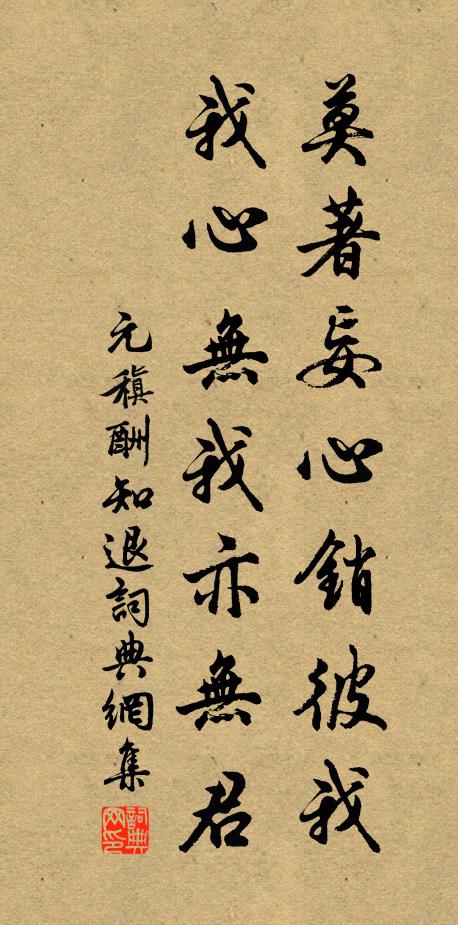 莫著妄心銷彼我
我心無我亦無君
元稹酬知退詞典網集
詞典
网印